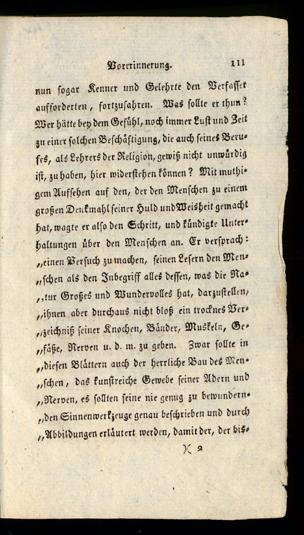 Vorerinnerung. III
nun sogar Kenner und Gelehrte den Verfasser
aufforderten, fortzufahren. Was sollte er thun?
Wer hätte bey dem Gefühl, noch immer Lust und Zeit
zu einer solchen Beschäftigung, die auch seines Beru-
fes, als Lehrers der Religion, gewiß nicht unwürdig
ist, zu haben, hier widerstehen können? Mit muthi-
gem Aufsehen auf den, der den Menschen zu einem
großen Denkmahl seiner Huld und Weisheit gemacht
hat, wagte er also den Schritt, und kündigte Unter-
haltungen über den Menschen an. Er versprach:
„einen Versuch zu machen, seinen Lesern den Men-
„schen als den Inbegriff alles dessen, was die Na-
„tur Großes und Wundervolles hat, darzustellen,
„ihnen aber durchaus nicht bloß ein trocknes Ver-
„zeichniß seiner Knochen, Bänder, Muskeln, Ge-
„fäße, Nerven u. d. m. zu geben. Zwar sollte in
„diesen Blättern auch der herrliche Bau des Men-
„schen, das kunstreiche Gewebe seiner Adern und
„Nerven, es sollten seine nie genug zu bewundern-
„den Sinnenwerkzeuge genau beschrieben und durch
„Abbildungen erläutert werden, damit der, der bis-
)( 2